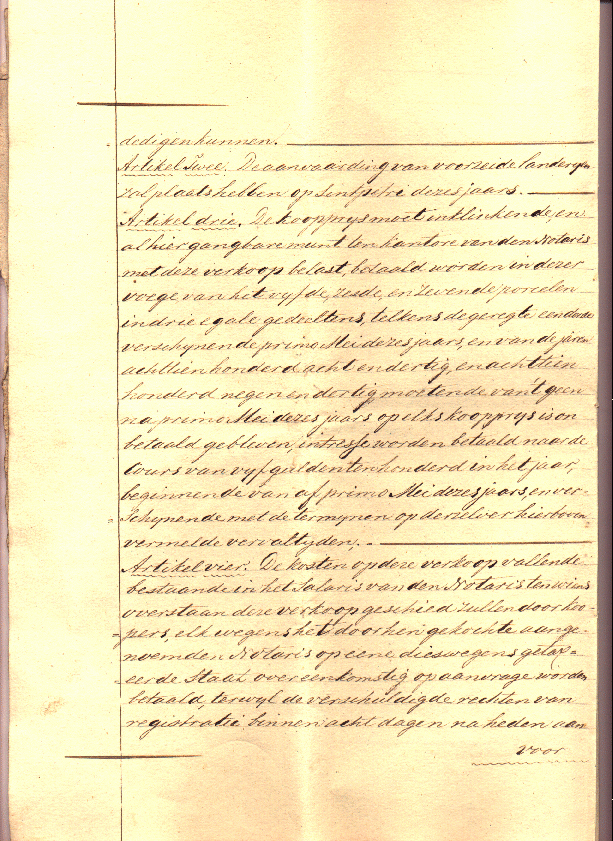 dedigen kunnen.
Artikel Twee. De aanvaarding van voorzeide landeryen
zal plaats hebben op Sint petri dezes jaars.
Artikel drie. De koopprys moet in klinkende en
alhier gangbare munt ten kantore van den Notaris
met deze verkoop belast, betaald worden in dezer
voege van het vyfde, zesde, en zevende porcelen
in drie egale gedeeltens, telkens de geregte eenderde
verschynende primo Mei dezes jaars, en van de jaren
achttienhonderd acht en dertig, en achttien
honderd negen en dertig moetende van't geen
na primo Mei dezes jaars op elks koopprys is on
betaald gebleven, intresse worden betaald naar de
Cours van vyf gulden ten honderd in het jaar,
beginnende van af primo Mei dezes jaars, en ver-
schynende met de termynen op derzelver hierboven
vermelde vervaltyden.
Artikel vier. De kosten op deze verkoop vallende
bestaande in het Salaris van den Notaris ten wiens
overstaan deze verkoop geschied zullen door koo-
pers, elk wegens het door hen gekochte aange-
noemden Notaris op eene, dieswegens getax-
eerde Staat overeenkomstig op aanvrage worden
betaald, terwyl de verschuldigde rechten van
registratie binnen acht dagen na heden aan
voor